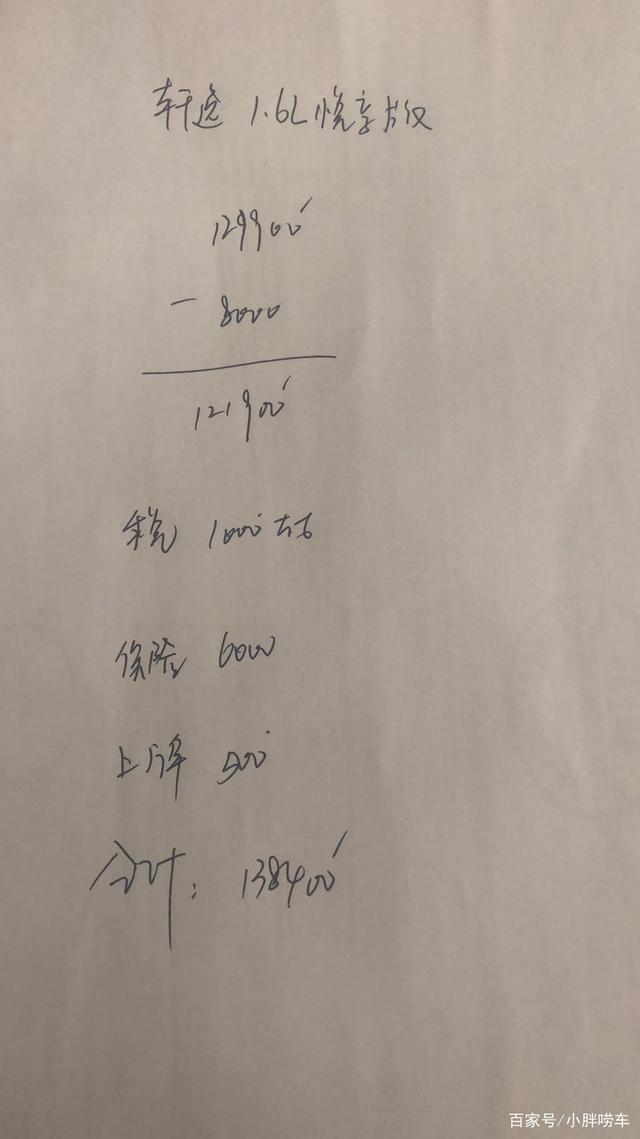 轩逸 1.6L悦享版
129900
- 8000
121900
税 10000左右
保险 6000
上牌 500
合计: 138400
百家号/小胖唠车